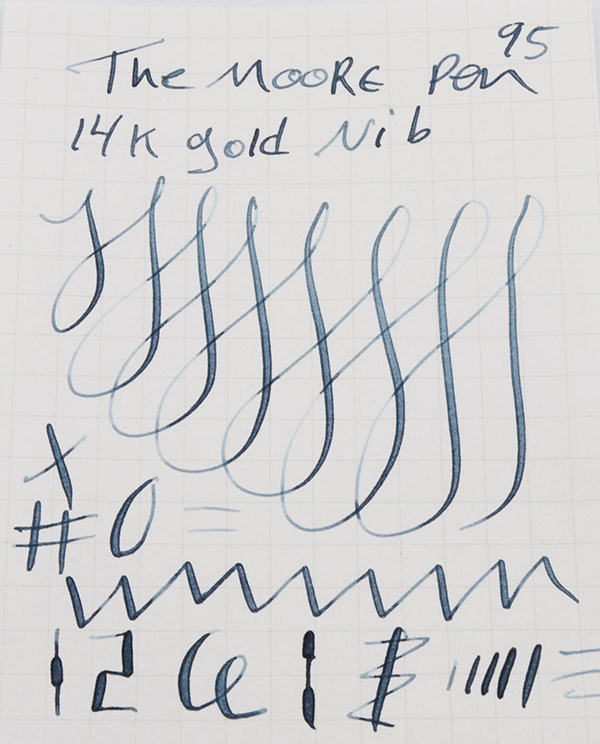 The MOORE Pen 95
14K gold Nib
X
# 0 =